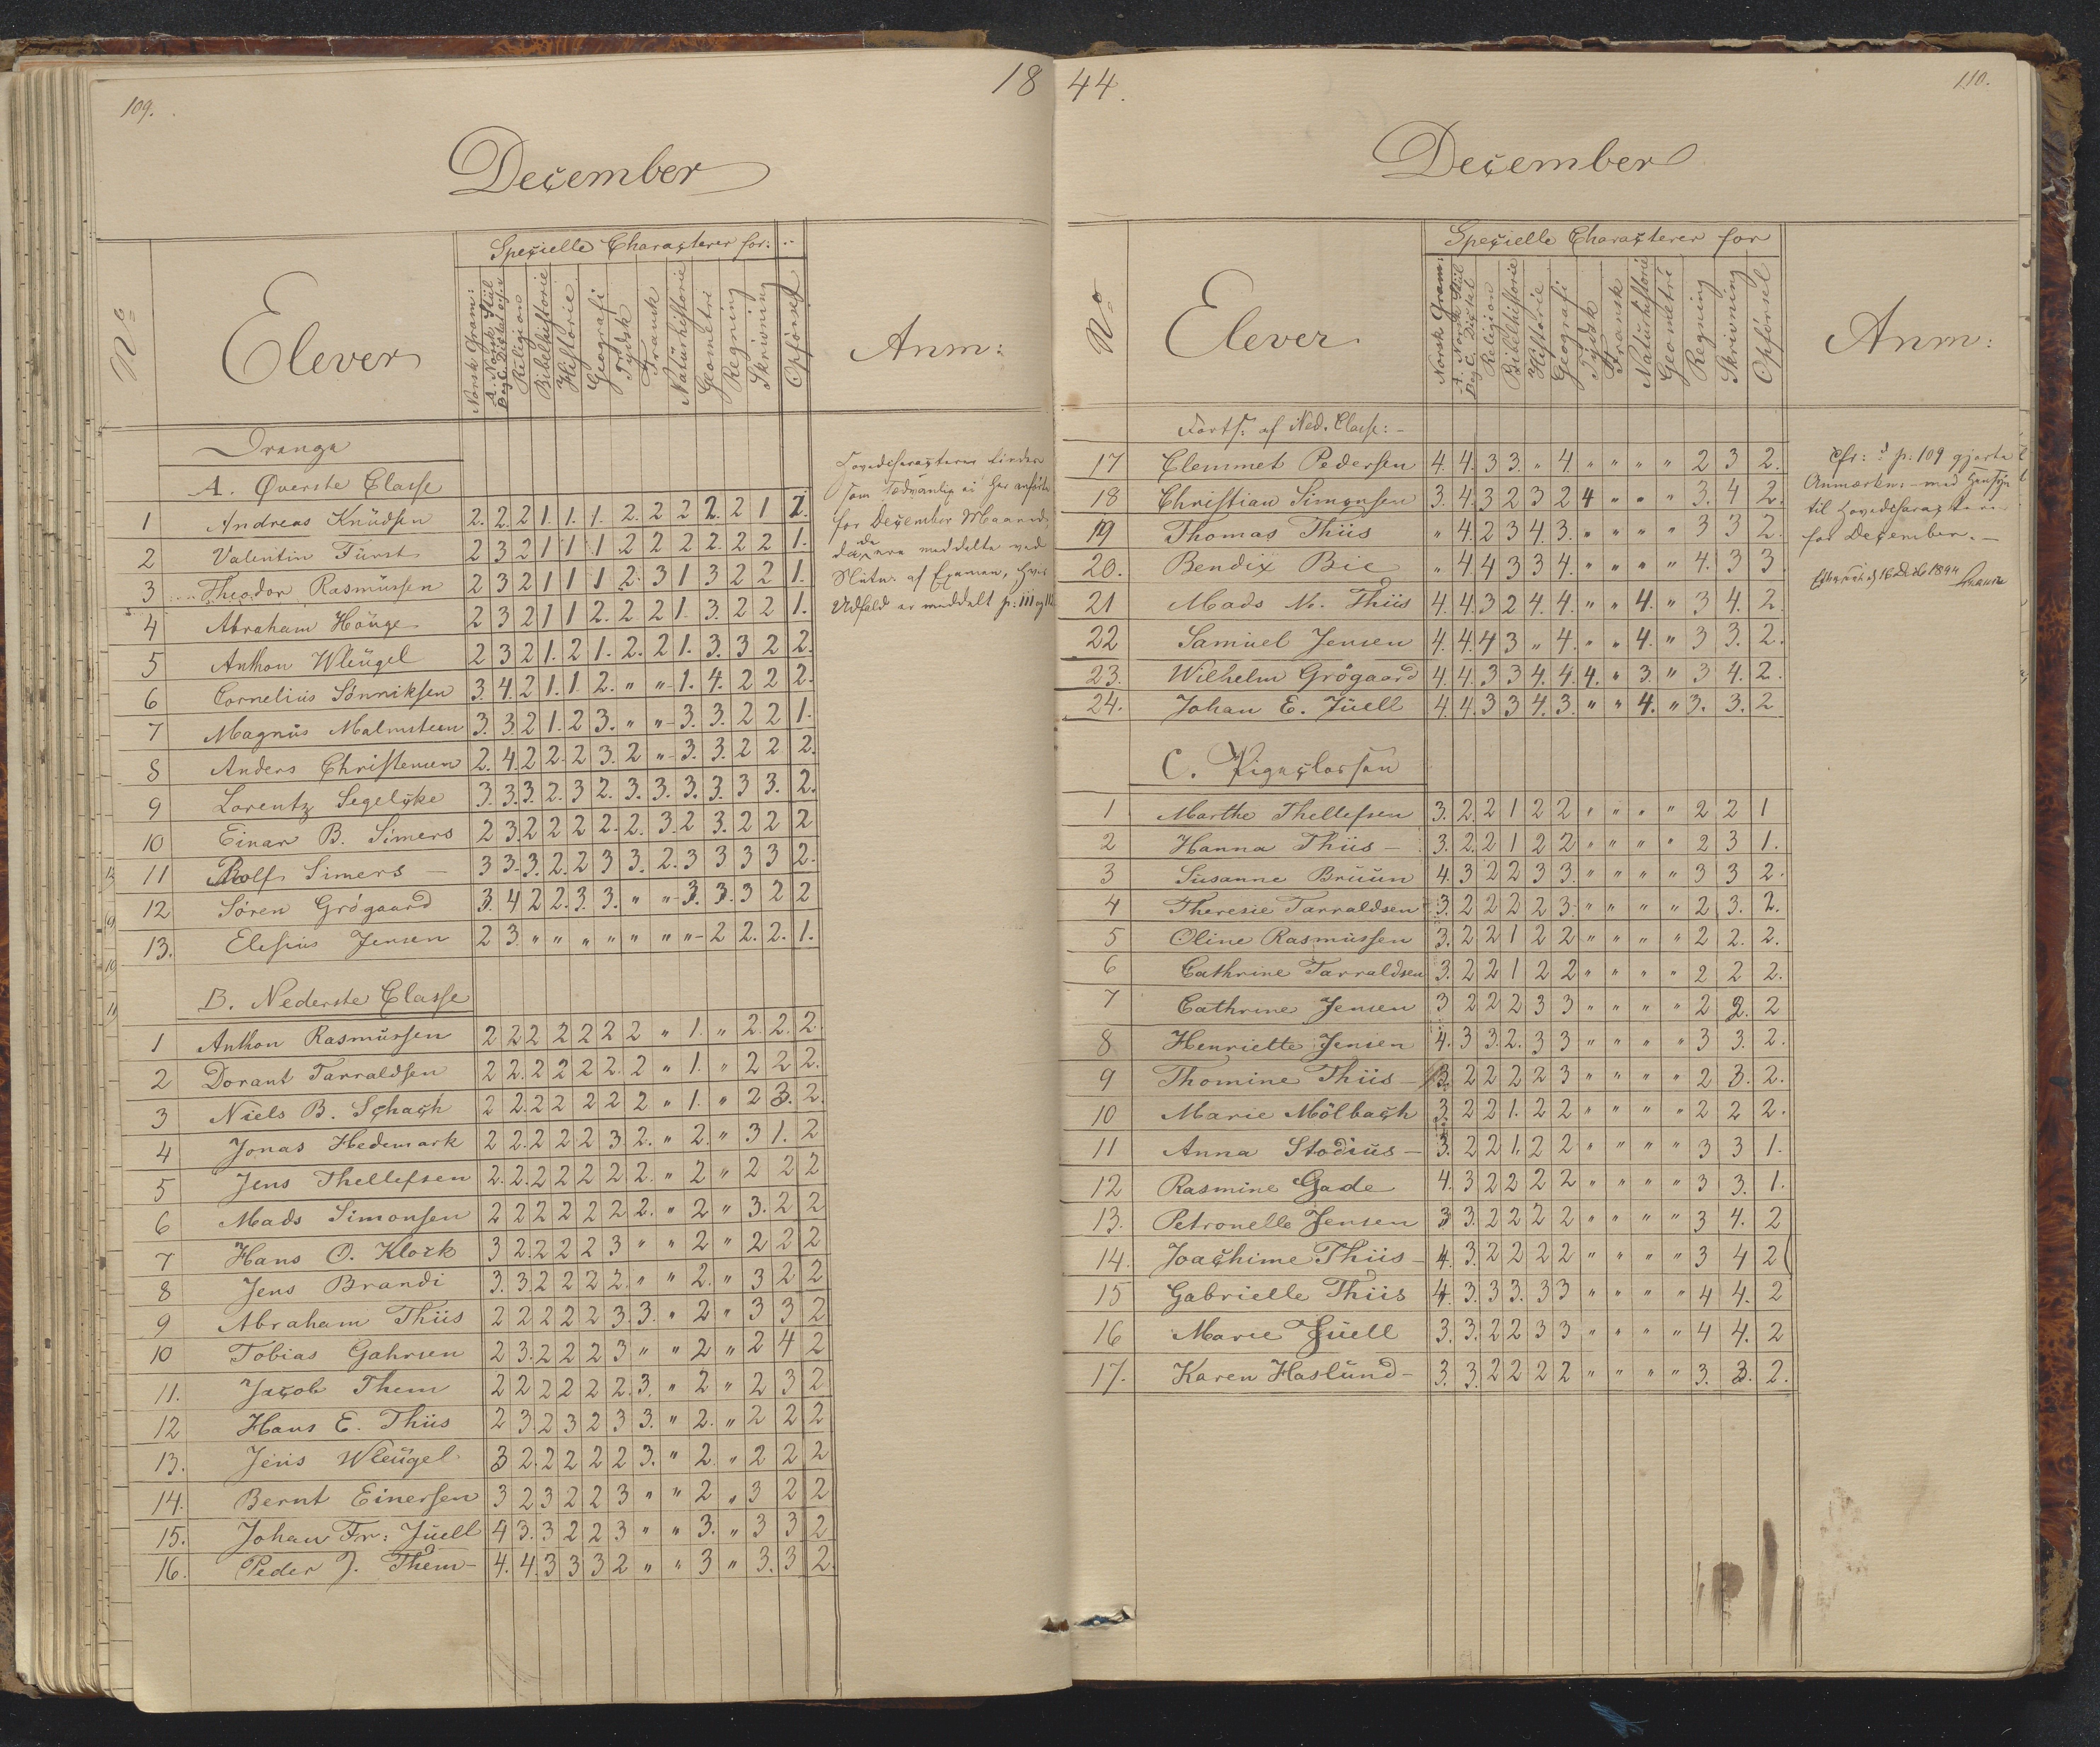 109.
18
December
No
Elever
Specielle Characterer for:
Norsk Gram:
A. Norsk Stiil
B og C. Dictat
Religion
Bibelhistorie
Historie
Geografi
Tydsk
Fransk
Naturhistorie
Geometri
Regning
Skrivning
Opförsel
Anm:
Drenge
A. Øverste Classe
1 Andreas Knudsen 2. 2. 2 1. 1. 1. 2. 2 2 2. 2 1 1.
2 Valentin Fürst 2 3 2 1 1 1 2 2 2 2. 2 2 1.
3 Theodor Rasmussen 2 3 2 1 1 1 2. 3 1 3 2 2 1.
4 Abraham Houge 2 3 2 1 1 2. 2 2 1. 3. 2 2 1.
5 Anthon Wleugel 2 3 2 1. 2 1. 2. 2 1. 3. 3 2 2.
6 Cornelius Sönniksen 3. 4. 2 1. 1. 2. " " 1. 4. 2 2 2.
7 Magnus Malmsteen 3. 3. 2 1. 2 3. " " 3. 3. 2 2 1.
8 Anders Christensen 2. 4. 2 2. 2 3. 2 " 3. 3. 2 2 2.
9 Lorentz Segelcke 3. 3. 3. 2. 3 2. 3. 3. 3. 3. 3 3. 2.
10 Einar B. Simers 2 3. 2 2 2 2. 2. 3. 2 3. 2 2 2
11 Rolf Simers – 3 3. 3. 2. 2 3 3. 2. 3 3 3 3 2.
12 Sören Grögaard 3. 4 2 2. 3. 3. " " 3. 3. 3 2 2
13. Elesius Jensen 2 3. " " " " " " " 2 2. 2. 1.
Hovedcharacteren findes
som sædvanlig ei her anförte
for December Maaned,
da de ere meddelte ved
Slutn. af Examen, hvis
Udfald er meddelt p: 111 og 112
B. Nederste Classe
1 Anthon Rasmussen 2 2 2 2 2 2 2 " 1. " 2. 2. 2.
2 Dorant Tarraldsen 2 2. 2 2 2 2. 2 " 1. " 2 2 2.
3 Niels B. Schach 2 2. 2 2 2 2 2 " 1. " 2 3. 2.
4 Jonas Hedemark 2 2. 2 2 2 3 2. " 2. " 3 1. 2
5 Jens Thellefsen 2. 2. 2 2 2 2 2. " 2 " 2 2 2
6 Mads Simonsen 2 2 2 2 2 2 2. " 2 " 3. 2 2
7 Hans O. Klock 3 2. 2 2 2 3 " " 2 " 2 2 2
8 Jens Brandi 3. 3. 2 2 2 2. " " 2. " 3 2 2
9 Abraham Thiis 2 2 2 2 2 3. 3. " 2 " 3 3 2
10 Tobias Gahrsen 2 3. 2 2 2 3 " " 2 " 2 4 2
11. Jacob Them 2 2 2 2 2 2. 3. " 2 " 2 3 2
12 Hans E. Thiis 2 3. 2 3 2 3 3. " 2. " 2 2 2
13. Jens Wleugel 3 2. 2 2 2 2 3. " 2. " 2 2 2
14. Bernt Einersen 3 2 3 2 2 3 " " 2 " 3 2 2
15. Johan Fr: Juell 4 3. 3 2 2 3 " " 3. " 3 3 2
16. Peder J. Them – 4. 4. 3 3 3 2 " " 3 " 3. 3 2.
44.
110.
December
No
Elever
Specielle Characterer for
Norsk Gram:
A. Norsk Stiil
B og C. Dictat
Religion
Bibelhistorie
Historie
Geografi
Tydsk
Fransk
Naturhistorie
Geometri
Regning
Skrivning
Opförsel
Anm:
Forts: af Ned. Classe: –
17 Clemmet Pedersen 4. 4. 3 3. " 4. " " " " 2 3 2.
18 Christian Simonsen 3. 4. 3 2 3 2 4 " " " 3. 4 2.
19 Thomas Thiis " 4. 2 3 4. 3. " " " " 3 3 2.
20. Bendix Bie " 4. 4 3 3 4. " " " " 4. 3 3
21 Mads M. Thiis 4. 4. 3 2 4. 4. " " 4. " 3 4. 2.
22 Samuel Jensen 4. 4. 4 3 " 4. " " 4. " 3 3. 2.
23. Wilhelm Grögaard 4. 4. 3 3 4. 4. 4. " 3. " 3 4. 2.
24. Johan E. Juell 4. 4. 3 3 4. 3. " " 4. " 3. 3. 2
Cfr: p: 109 gjorte
Anmærkn: – med Hensyn
til Hovedcharacteren
for December. –
16 Decbr 1844
C. Pigeclassen
1 Marthe Thellefsen 3. 2. 2 1 2 2 " " " " 2 2 1
2 Hanna Thiis – 3. 2. 2 1 2 2 " " " " 2 3 1.
3 Susanne Bruun 4. 3 2 2 3 3. " " " " 3 3 2.
4 Theresie Tarraldsen 3. 2 2 2 2 3. " " " " 2 3. 2.
5 Oline Rasmussen 3. 2 2 1 2 2 " " " " 2 2. 2.
6 Cathrine Tarraldsen 3. 2 2 1 2 2 " " " " 2 2 2.
7 Cathrine Jensen 3 2 2 2 3 3 " " " " 2 2. 2
8 Henriette Jensen 4. 3 3. 2. 3 3 " " " " 3 3. 2.
9 Thomine Thiis – 3. 2 2 2 2 3 " " " " 2 3. 2.
10 Marie Mölbach 3. 2 2 1. 2 2 " " " " 2 2 2.
11 Anna Stodius – 3. 2 2 1. 2 2 " " " " 3 3 1.
12 Rasmine Gade 4. 3 2 2 2 2 " " " " 3 3. 1.
13. Petronelle Jensen 3 3. 2 2 2 2 " " " " 3 4. 2
14. Joachime Thiis – 4. 3. 2 2 2 2 " " " " 3 4 2
15 Gabrielle Thiis 4. 3. 3 3. 3 3 " " " " 4 4. 2
16 Marie Juell 3. 3. 2 2 3 3 " " " " 4 4. 2
17. Karen Haslund – 3. 3. 2 2 2 2 " " " " 3. 3. 2.